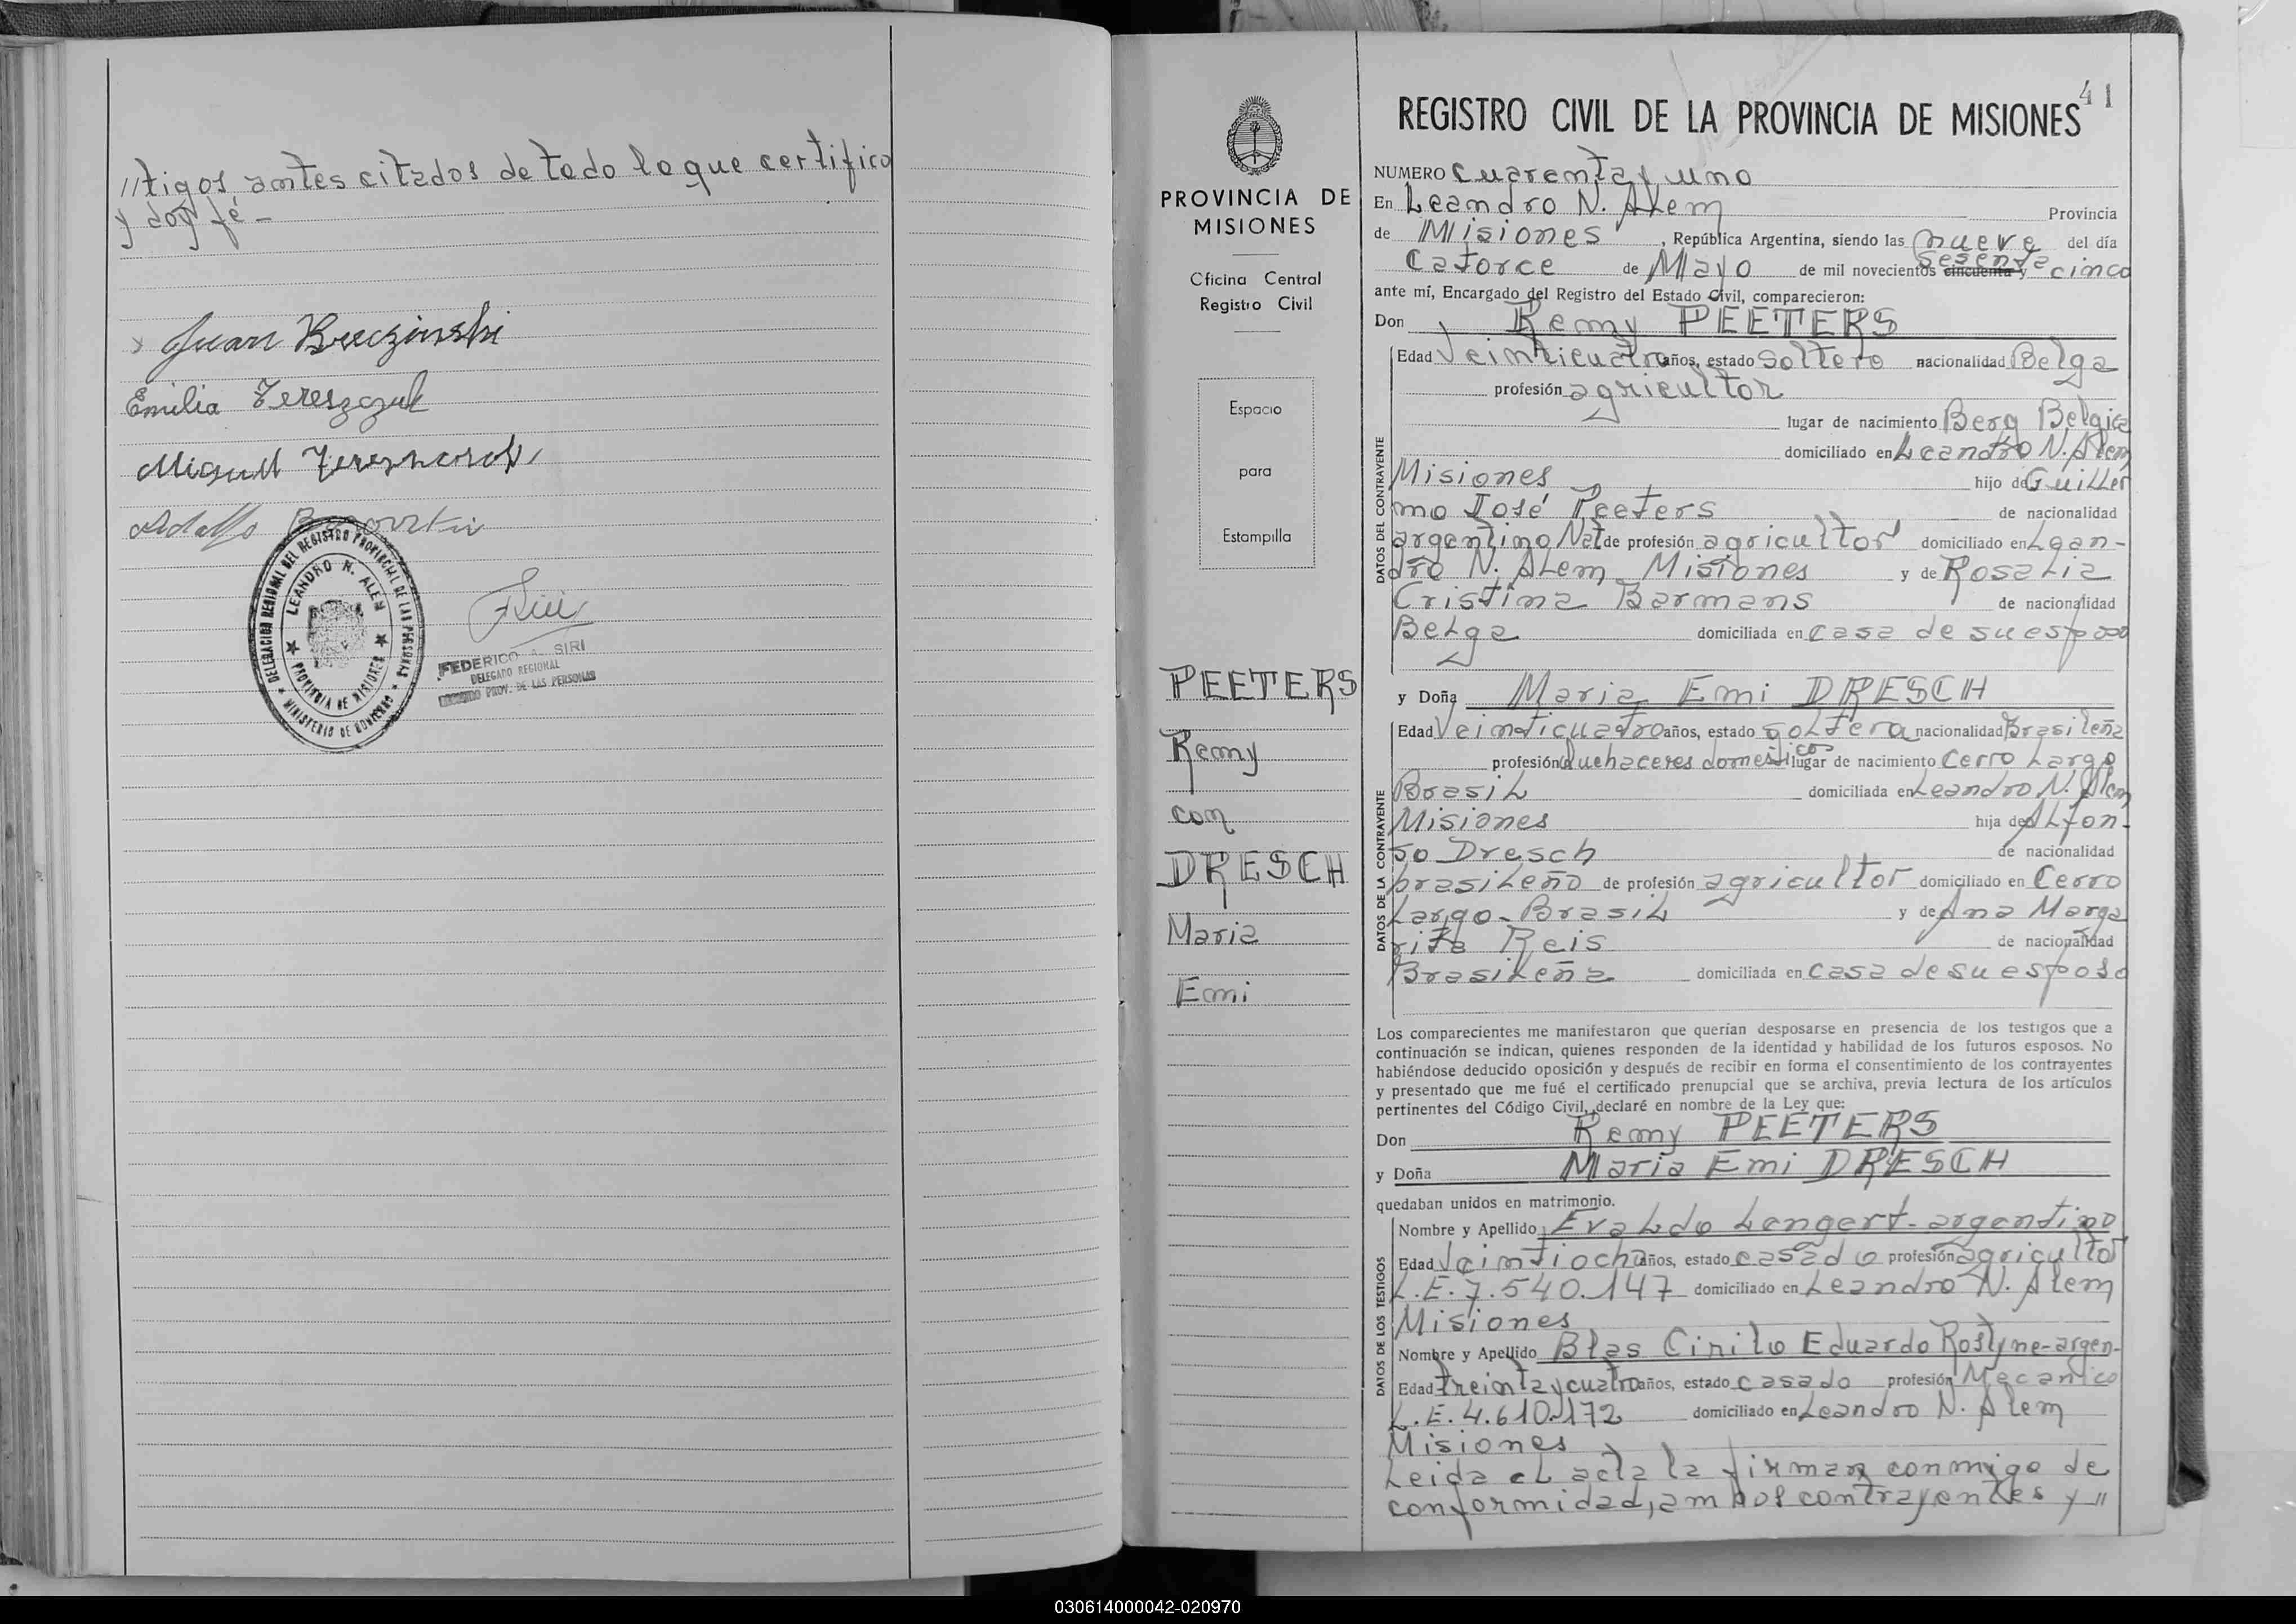 //tigos antes citados de todo lo que certifico
y doy fé -
Juan Kuczinski
Emilia Tereszczuk
Miguel
Adolfo
DELEGACION REGIONAL DEL REGISTRO PROVINCIAL DE LAS PERSONAS
LEANDRO N. ALEM
PROVINCIA DE MISIONES
MINISTERIO DE GOBIERNO
FEDERICO A. SIRI
DELEGADO REGIONAL
REGISTRO PROV. DE LAS PERSONAS
PROVINCIA DE
MISIONES
Oficina Central
Registro Civil
Espacio
para
Estampilla
PEETERS
Remy
con
DRESCH
Maria
Emi
41
REGISTRO CIVIL DE LA PROVINCIA DE MISIONES
NUMERO cuarenta y uno
En Leandro N. Alem Provincia
de Misiones, República Argentina, siendo las nueve del día
Catorce de Mayo de mil novecientos cincuenta y sesenta cinco
ante mí, Encargado del Registro del Estado Civil, comparecieron:
Don Remy PEETERS
DATOS DEL CONTRAYENTE
Edad Veinticuatro años, estado soltero nacionalidad Belga
profesión agricultor
lugar de nacimiento Berg Belgica
domiciliado en Leandro N. Alem
Misiones hijo de Guiller
mo José Peeters de nacionalidad
argentino Nat de profesión agricultor domiciliado en Lean-
dro N. Alem Misiones y de Rosalia
Cristina Barmans de nacionalidad
Belga domiciliada en casa de su esposo
y Doña Maria Emi DRESCH
DATOS DE LA CONTRAYENTE
Edad Veinticuatro años, estado soltera nacionalidad Brasileña
profesión Quehaceres domesticos lugar de nacimiento Cerro Largo
Brasil domiciliada en Leandro N. Alem
Misiones hija de Alfon-
so Dresch de nacionalidad
brasileño de profesión agricultor domiciliado en Cerro
Largo - Brasil y de Ana Marga
rita Reis de nacionalidad
Brasileña domiciliada en casa de su esposo
Los comparecientes me manifestaron que querían desposarse en presencia de los testigos que a
continuación se indican, quienes responden de la identidad y habilidad de los futuros esposos. No
habiéndose deducido oposición y después de recibir en forma el consentimiento de los contrayentes
y presentado que me fué el certificado prenupcial que se archiva, previa lectura de los artículos
pertinentes del Código Civil, declaré en nombre de la Ley que:
Don Remy PEETERS
y Doña Maria Emi DRESCH
quedaban unidos en matrimonio.
DATOS DE LOS TESTIGOS
Nombre y Apellido Evaldo Langert - argentino
Edad Veintiocho años, estado casado profesión agricultor
L.E. 7.540.147 domiciliado en Leandro N. Alem
Misiones
Nombre y Apellido Blas Cirilo Eduardo Rostyne - argen-
Edad treinta y cuatro años, estado casado profesión Mecanico
L.E. 4.610.172 domiciliado en Leandro N. Alem
Misiones
Leida el acta la firman conmigo de
conformidad, ambos contrayentes y //
030614000042-020970